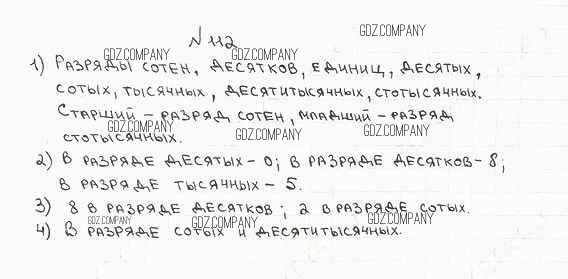 GDZ.COMPANY
№ 112
GDZ.COMPANY GDZ.COMPANY
1) Разряды сотен, десятков, единиц, десятых,
сотых, тысячных, десятитысячных, стотысячных.
Старший – разряд сотен, младший – разряд
стотысячных.
GDZ.COMPANY GDZ.COMPANY GDZ.COMPANY
2) В разряде десятых – 0; в разряде десятков – 8;
в разряде тысячных – 5.
3) 8 в разряде десятков; 2 в разряде сотых.
GDZ.COMPANY GDZ.COMPANY GDZ.COMPANY
4) В разряде сотых и десятитысячных.